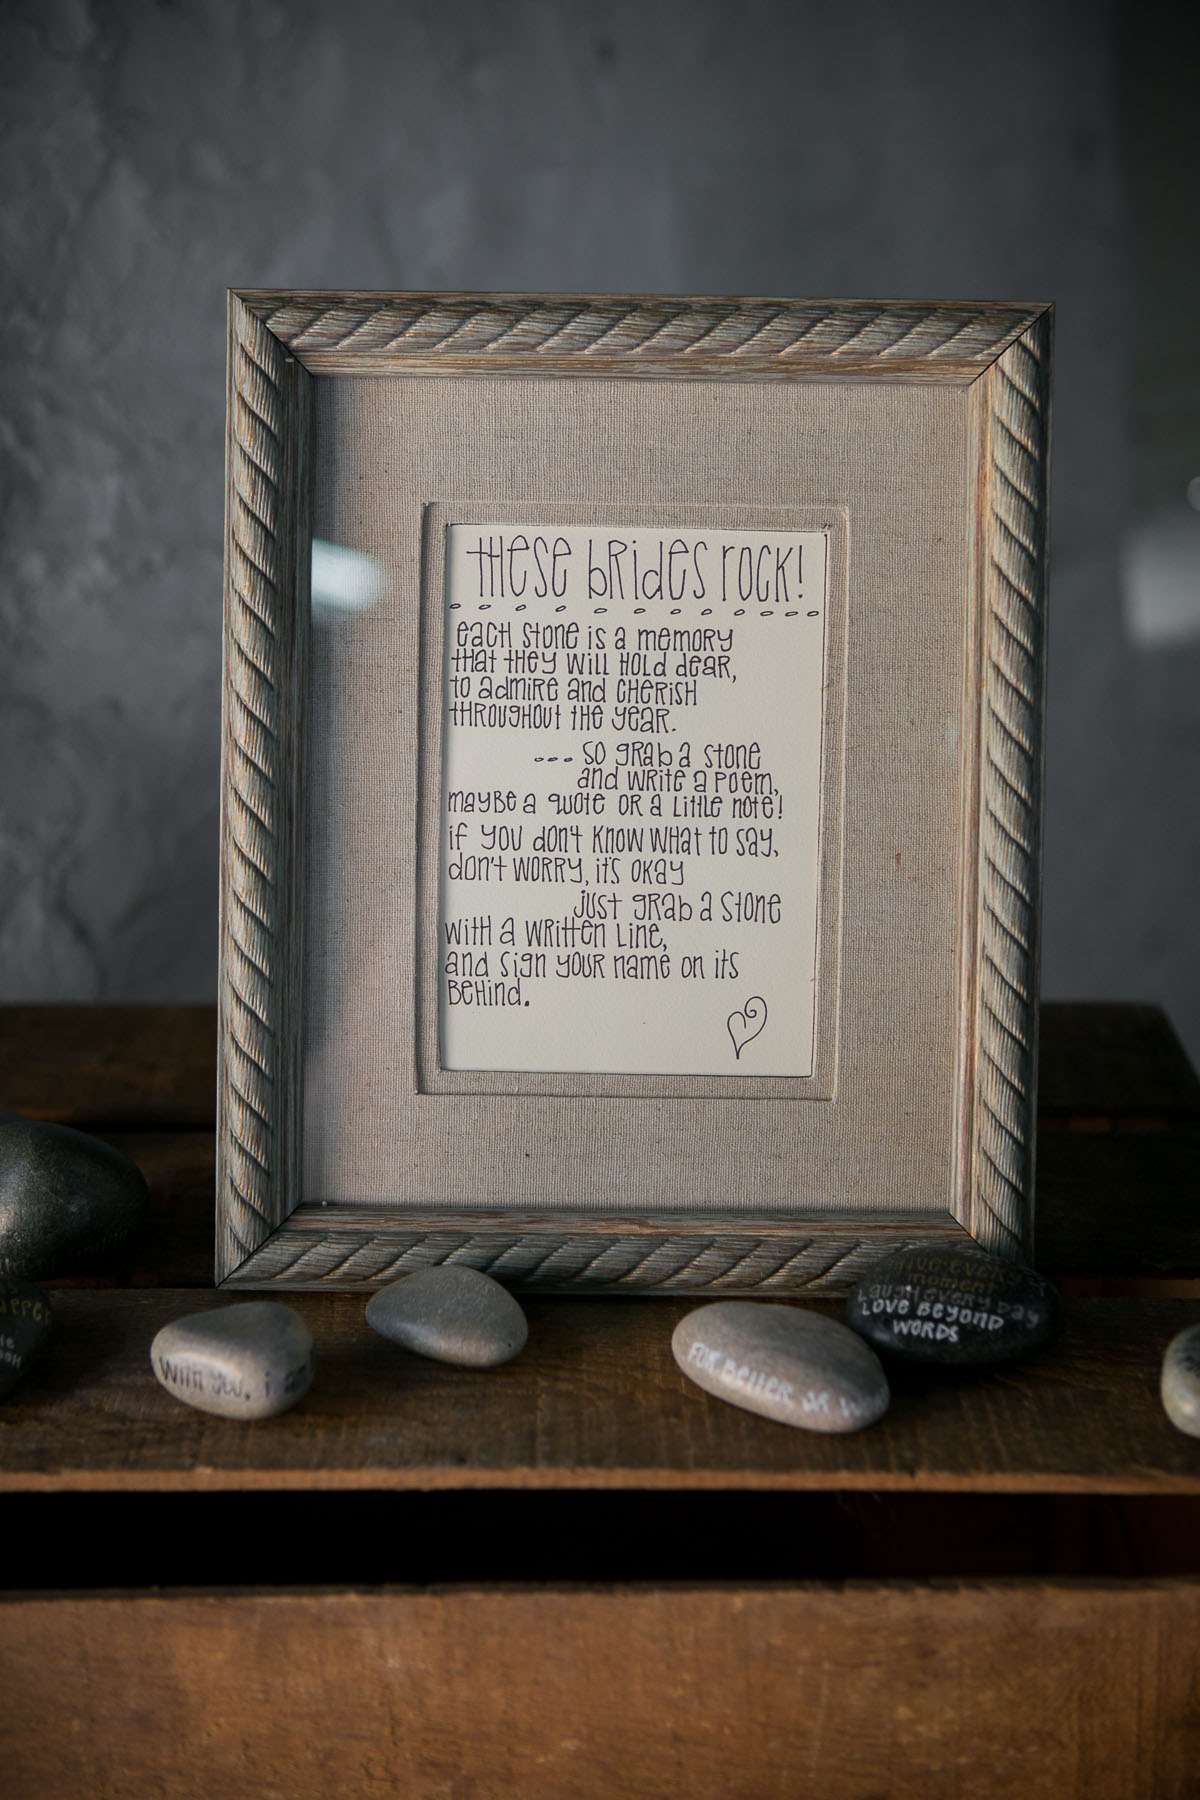 these brides rock!
each stone is a memory
that they will hold dear,
to admire and cherish
throughout the year.
... so grab a stone
and write a poem,
maybe a quote or a little note!
if you don't know what to say,
don't worry, it's okay
just grab a stone
with a written line,
and sign your name on its
behind.
with you. i
for better or
live every
moment
laugh every day
love beyond
words